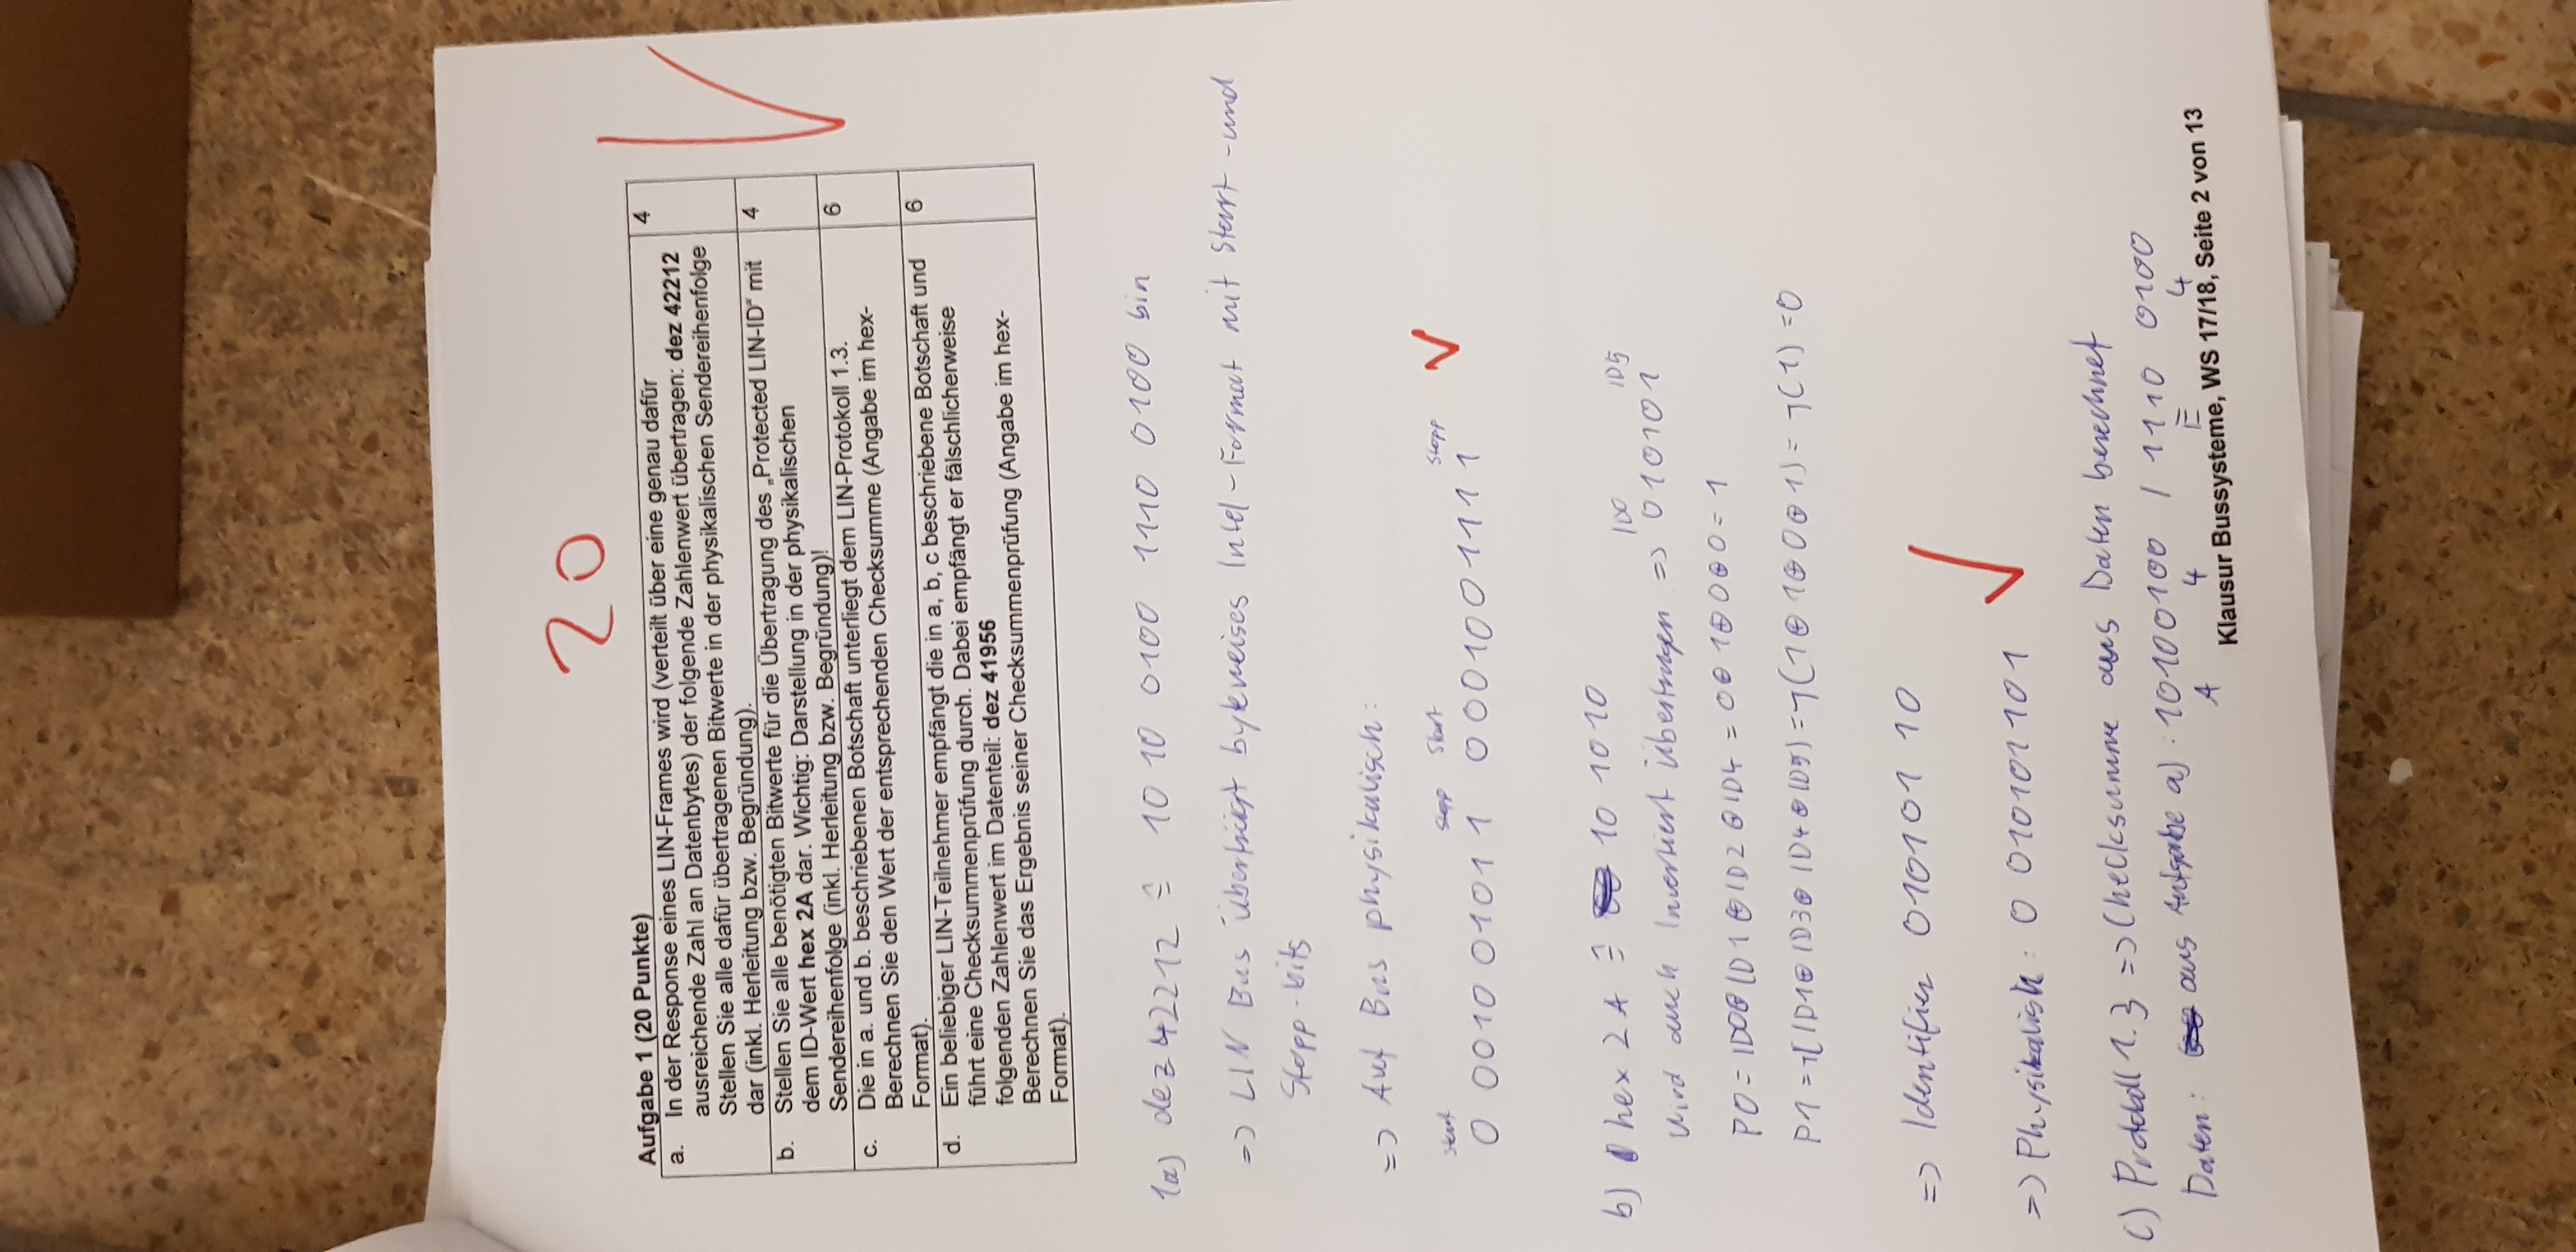 20
Aufgabe 1 (20 Punkte)
a. In der Response eines LIN-Frames wird (verteilt über eine genau dafür 4
ausreichende Zahl an Datenbytes) der folgende Zahlenwert übertragen: dez 42212
Stellen Sie alle dafür übertragenen Bitwerte in der physikalischen Sendereihenfolge
dar (inkl. Herleitung bzw. Begründung).
b. Stellen Sie alle benötigten Bitwerte für die Übertragung des „Protected LIN-ID“ mit 4
dem ID-Wert hex 2A dar. Wichtig: Darstellung in der physikalischen
Sendereihenfolge (inkl. Herleitung bzw. Begründung)!
c. Die in a. und b. beschriebenen Botschaft unterliegt dem LIN-Protokoll 1.3. 6
Berechnen Sie den Wert der entsprechenden Checksumme (Angabe im hex-
Format).
d. Ein beliebiger LIN-Teilnehmer empfängt die in a, b, c beschriebene Botschaft und 6
führt eine Checksummenprüfung durch. Dabei empfängt er fälschlicherweise
folgenden Zahlenwert im Datenteil: dez 41956
Berechnen Sie das Ergebnis seiner Checksummenprüfung (Angabe im hex-
Format).
1a) dez 42212 ≙ 10 10 0100 1110 0100 bin
=> LIN Bus überträgt byteweises Intel-Format mit Start-und
Stopp-bits
=> Auf Bus physikalisch:
Start Stopp Start Stopp
0 0010 01011 0001001111
b) hex 2A ≙ 10 1010
ID0 ID5
Wird auch Invertiert übertragen => 010101
P0 = ID0⊕ID1⊕ID2⊕ID4 = 0⊕1⊕0⊕0 = 1
P1 = ¬(ID1⊕ID3⊕ID4⊕ID5) = ¬(1⊕1⊕0⊕1) = ¬(1) = 0
=> Identifier 010101 10
=> Physikalisch: 0 010101101
c) Protokoll 1.3 => Checksumme aus Daten berechnet
Daten: aus Aufgabe a): 10100100 | 1110 0100
A 4 E 4
Klausur Bussysteme, WS 17/18, Seite 2 von 13